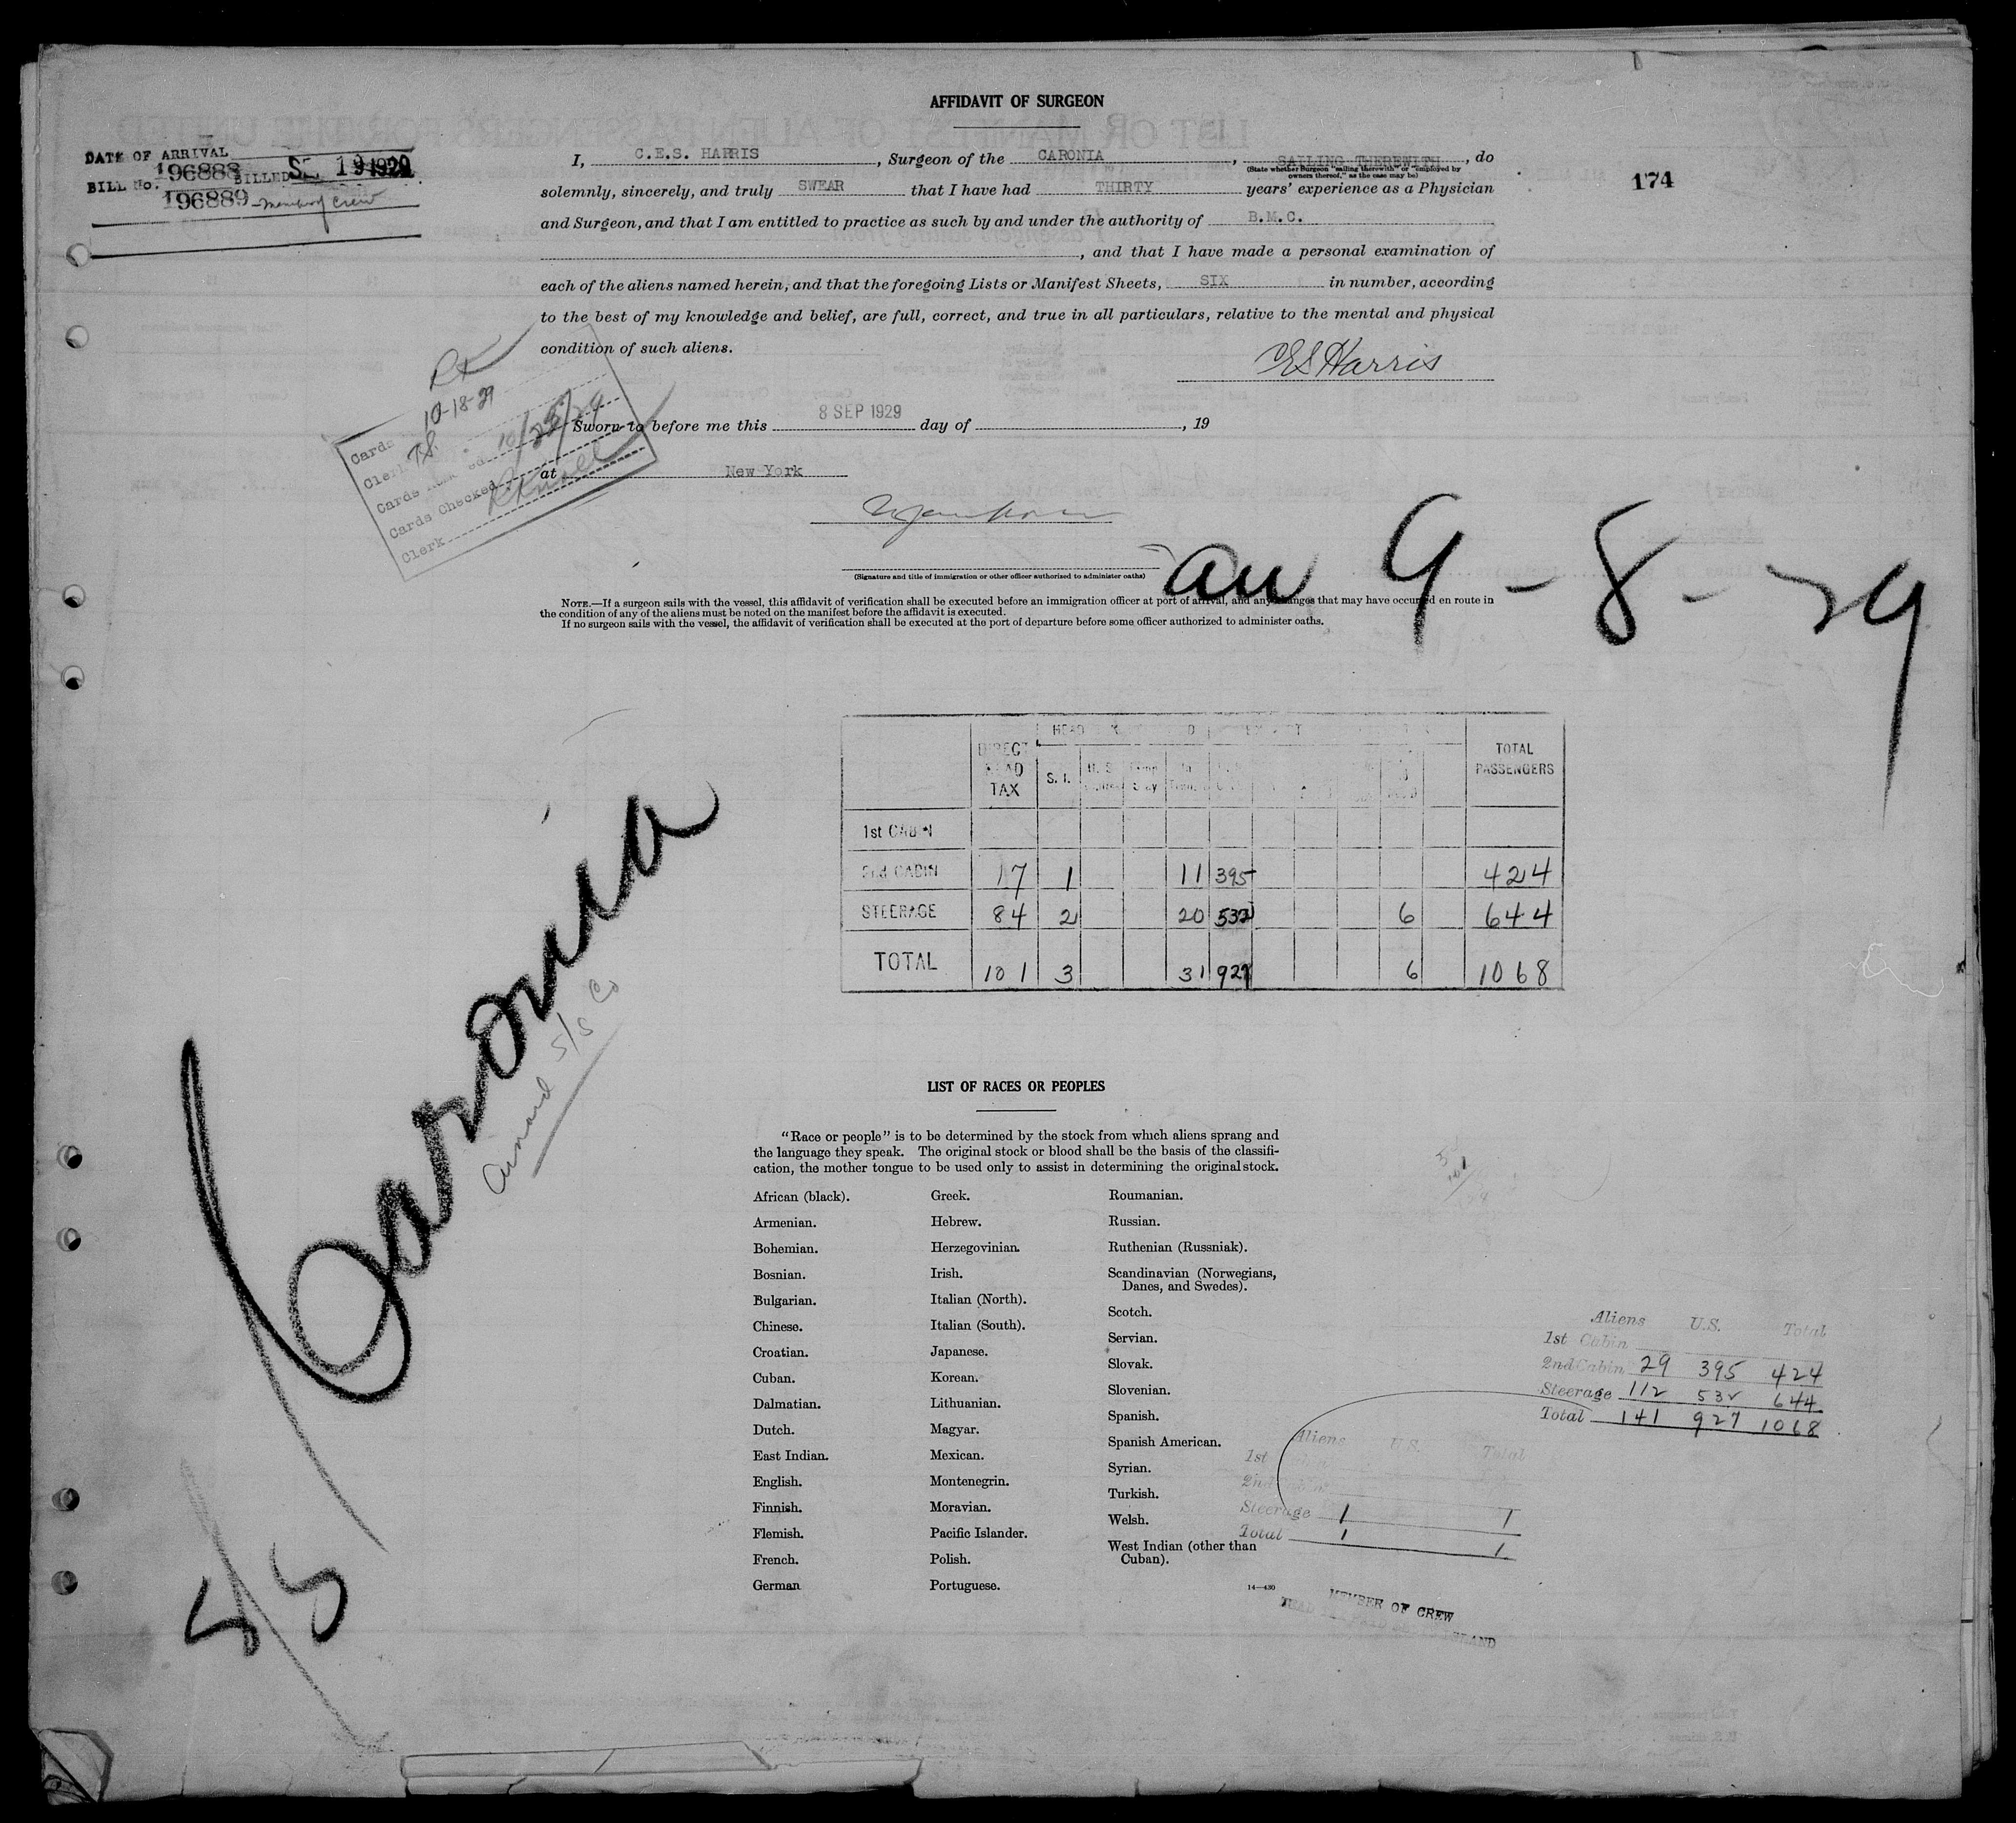 AFFIDAVIT OF SURGEON
DATE OF ARRIVAL
BILL No. 196888 BILLED 19 1929
196889 - Member of Crew
174
I, C.E.S. HARRIS, Surgeon of the CARONIA, SAILING THEREWITH, do
(State whether Surgeon "sailing therewith" or "employed by
owners thereof," as the case may be)
solemnly, sincerely, and truly SWEAR that I have had THIRTY years' experience as a Physician
and Surgeon, and that I am entitled to practice as such by and under the authority of B.M.C.
, and that I have made a personal examination of
each of the aliens named herein, and that the foregoing Lists or Manifest Sheets, SIX in number, according
to the best of my knowledge and belief, are full, correct, and true in all particulars, relative to the mental and physical
condition of such aliens.
CES Harris
Sworn to before me this 8 SEP 1929 day of , 19
at New York
(Signature and title of immigration or other officer authorized to administer oaths)
Cards 10-18-29
Clerk
Cards
Cards Checked
Clerk
arr 9-8-29
NOTE.—If a surgeon sails with the vessel, this affidavit of verification shall be executed before an immigration officer at port of arrival, and any changes that may have occurred en route in
the condition of any of the aliens must be noted on the manifest before the affidavit is executed.
If no surgeon sails with the vessel, the affidavit of verification shall be executed at the port of departure before some officer authorized to administer oaths.
DIRECT HEAD TAX S. I. TOTAL PASSENGERS
1st CABIN
2nd CABIN 17 1 11 395 424
STEERAGE 84 2 20 532 6 644
TOTAL 101 3 31 927 6 1068
S/S Caronia
Cunard S/S Co
LIST OF RACES OR PEOPLES
"Race or people" is to be determined by the stock from which aliens sprang and
the language they speak. The original stock or blood shall be the basis of the classifi-
cation, the mother tongue to be used only to assist in determining the original stock.
African (black).
Armenian.
Bohemian.
Bosnian.
Bulgarian.
Chinese.
Croatian.
Cuban.
Dalmatian.
Dutch.
East Indian.
English.
Finnish.
Flemish.
French.
German
Greek.
Hebrew.
Herzegovinian.
Irish.
Italian (North).
Italian (South).
Japanese.
Korean.
Lithuanian.
Magyar.
Mexican.
Montenegrin.
Moravian.
Pacific Islander.
Polish.
Portuguese.
Roumanian.
Russian.
Ruthenian (Russniak).
Scandinavian (Norwegians,
Danes, and Swedes).
Scotch.
Servian.
Slovak.
Slovenian.
Spanish.
Spanish American.
Syrian.
Turkish.
Welsh.
West Indian (other than
Cuban).
14—430
Aliens U.S. Total
1st Cabin
2nd Cabin 29 395 424
Steerage 112 532 644
Total 141 927 1068
Aliens U.S. Total
1st
2nd
Steerage 1 1
Total 1 1
MEMBER OF CREW